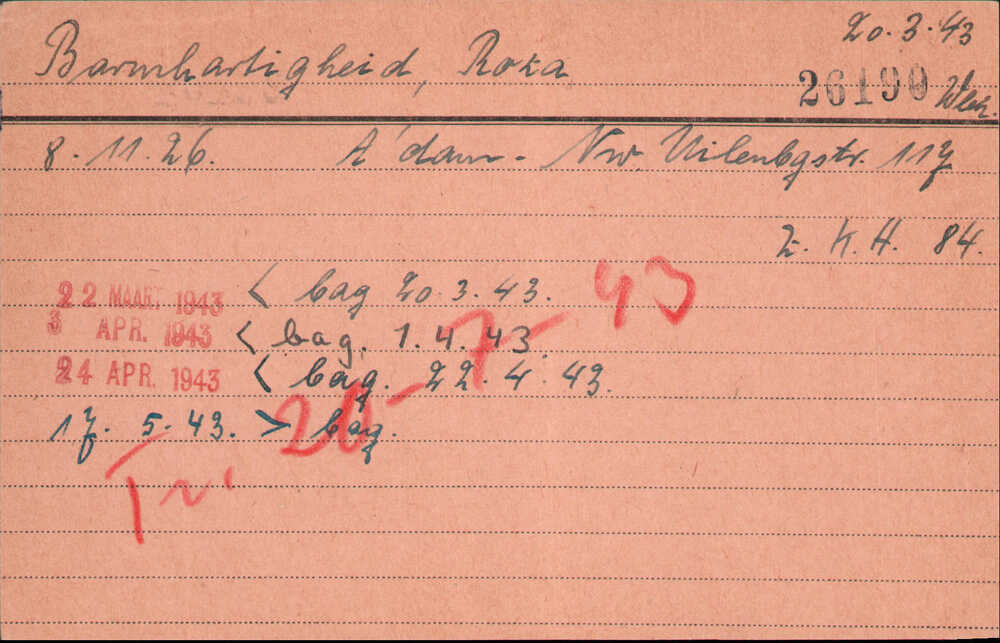 20.3.43
Barmhartigheid, Roza
26190
8.11.26. A'dam- Nw. Uilenbgstr. 117
Z. K. H. 84.
22 MAART 1943 < bag 20.3.43.
3 APR. 1943 < bag. 1.4.43.
24 APR. 1943 < bag. 22.4.43.
17. 5.43. > bag.
Tr. 20-7-43